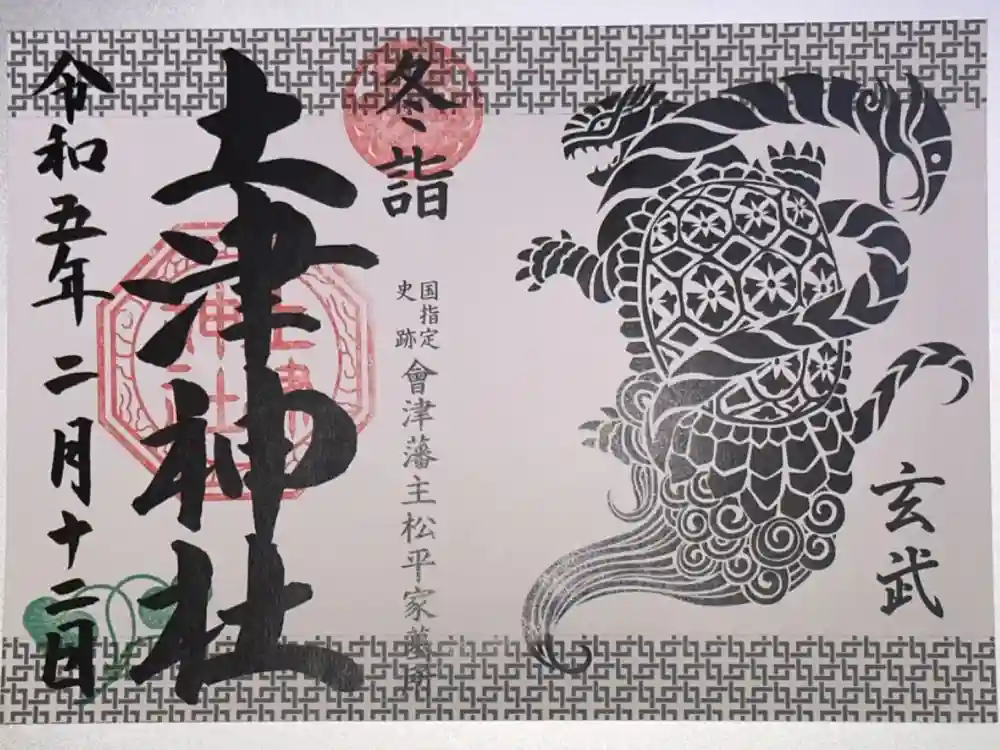 玄武
冬詣
国指定
史跡
會津藩主松平家墓所
土津神社
土津
神社
令和五年二月十二日